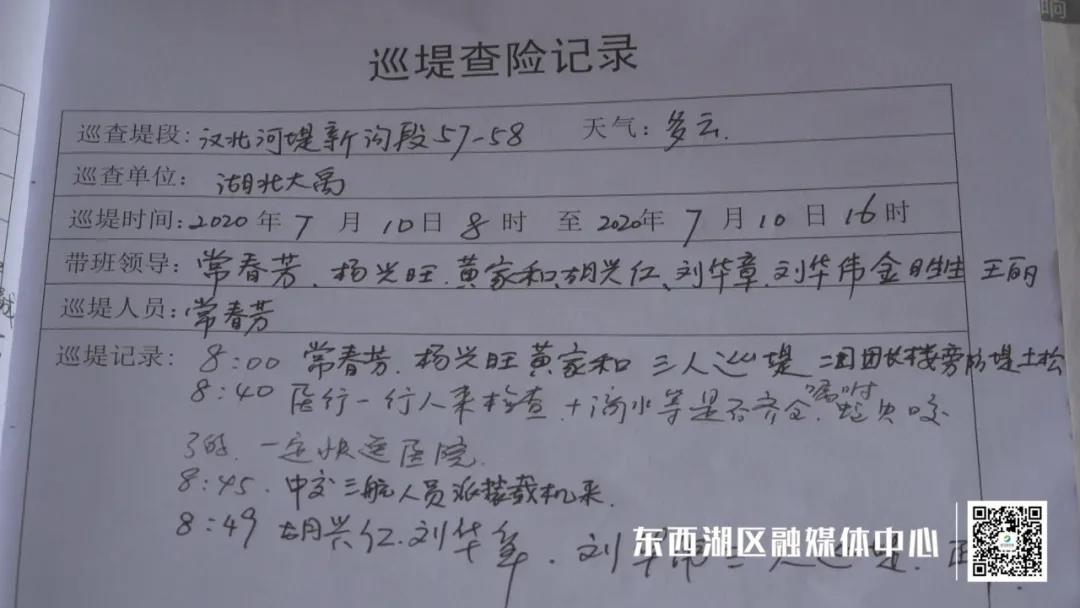 响
巡堤查险记录
巡查堤段:汉北河堤新沟段57-58 天气:多云.
巡查单位:湖北大禹
巡堤时间:2020年7月10日8时 至2020年7月10日16时
带班领导:常春芳、杨兴旺.黄家和、胡兴仁、刘华章.刘华伟金 王丽
巡堤人员:常春芳
巡堤记录:8:00 常春芳.杨兴旺黄家和 三人巡堤 二团团长楼旁防堤土松
8:40 医疗一行人来检查 十滴水等是否齐全.嘱咐 咬
了的.一定快送医院.
8:45.中交三航人员派装载机来.
8:49 胡兴仁.刘华章.刘华伟三人巡堤.
东西湖区融媒体中心